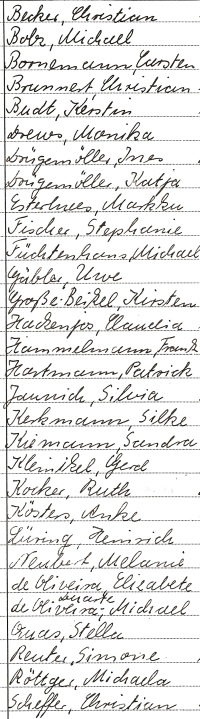 Becker, Christian
Bolz, Michael
Bornemann, Carsten
Brunnert, Christian
Budt, Kerstin
Drews, Monika
Drügemöller, Ines
Drügemöller, Katja
Esterhues, Markku
Fischer, Stephanie
Füchtenhans, Michael
Gübler, Uwe
Große-Beikel, Kirsten
Hackenfos, Claudia
Hammelmann, Frank
Hartmann, Patrick
Jaunich, Silvia
Kerkmann, Silke
Kiemann, Sandra
Kleinikel, Gerd
Kocker, Ruth
Kösters, Anke
Lüring, Heinrich
Neubert, Melanie
de Oliveira, Elisabete
de Oliveira-Duarte, Michael
Quas, Stella
Reuter, Simone
Röttger, Michaela
Scheffler, Christian